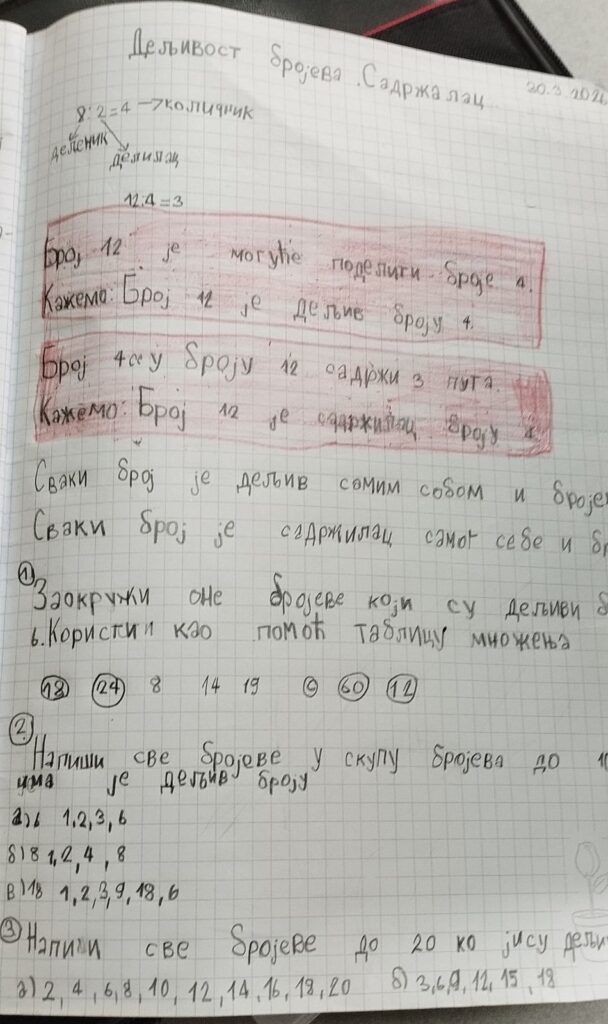 Дељивост бројева. Садржалац
20.3.202
8:2=4 →количник
дељеник
делилац
12:4=3
Број 12 је могуће поделити броје 4.
Кажемо: Број 12 је дељив броју 4.
Број 4 се у броју 12 садржи 3 пута.
Кажемо: Број 12 је садржилац броју 4
Сваки број је дељив сомим собом и броје
Сваки број је садржилац самог себе и б
1
Заокружи оне бројеве који су дељиви б
6. Користи као помоћ таблицу множења
18 24 8 14 19 6 60 12
2
Напиши све бројеве у скупу бројева до 10
има је дељив броју
а) 6 1,2,3,6
б) 8 1,2,4,8
в) 18 1,2,3,9,18,6
3 Напиши све бројеве до 20 ко јису дељи
а) 2, 4, 6, 8, 10, 12, 14, 16, 18, 20 б) 3,6,9,12,15,18